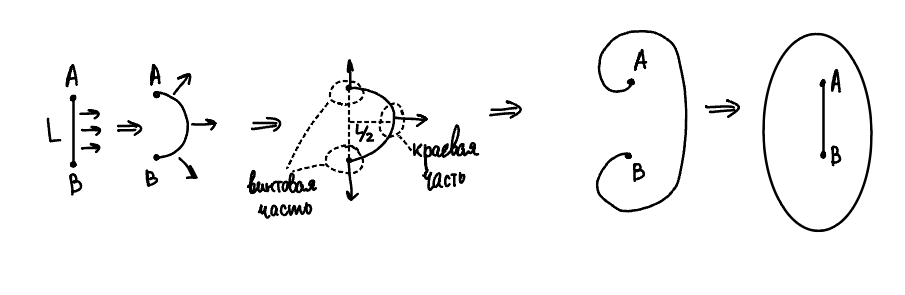 A
L
B
A
B
L/2
винтовая
часть
краевая
часть
A
B
A
B